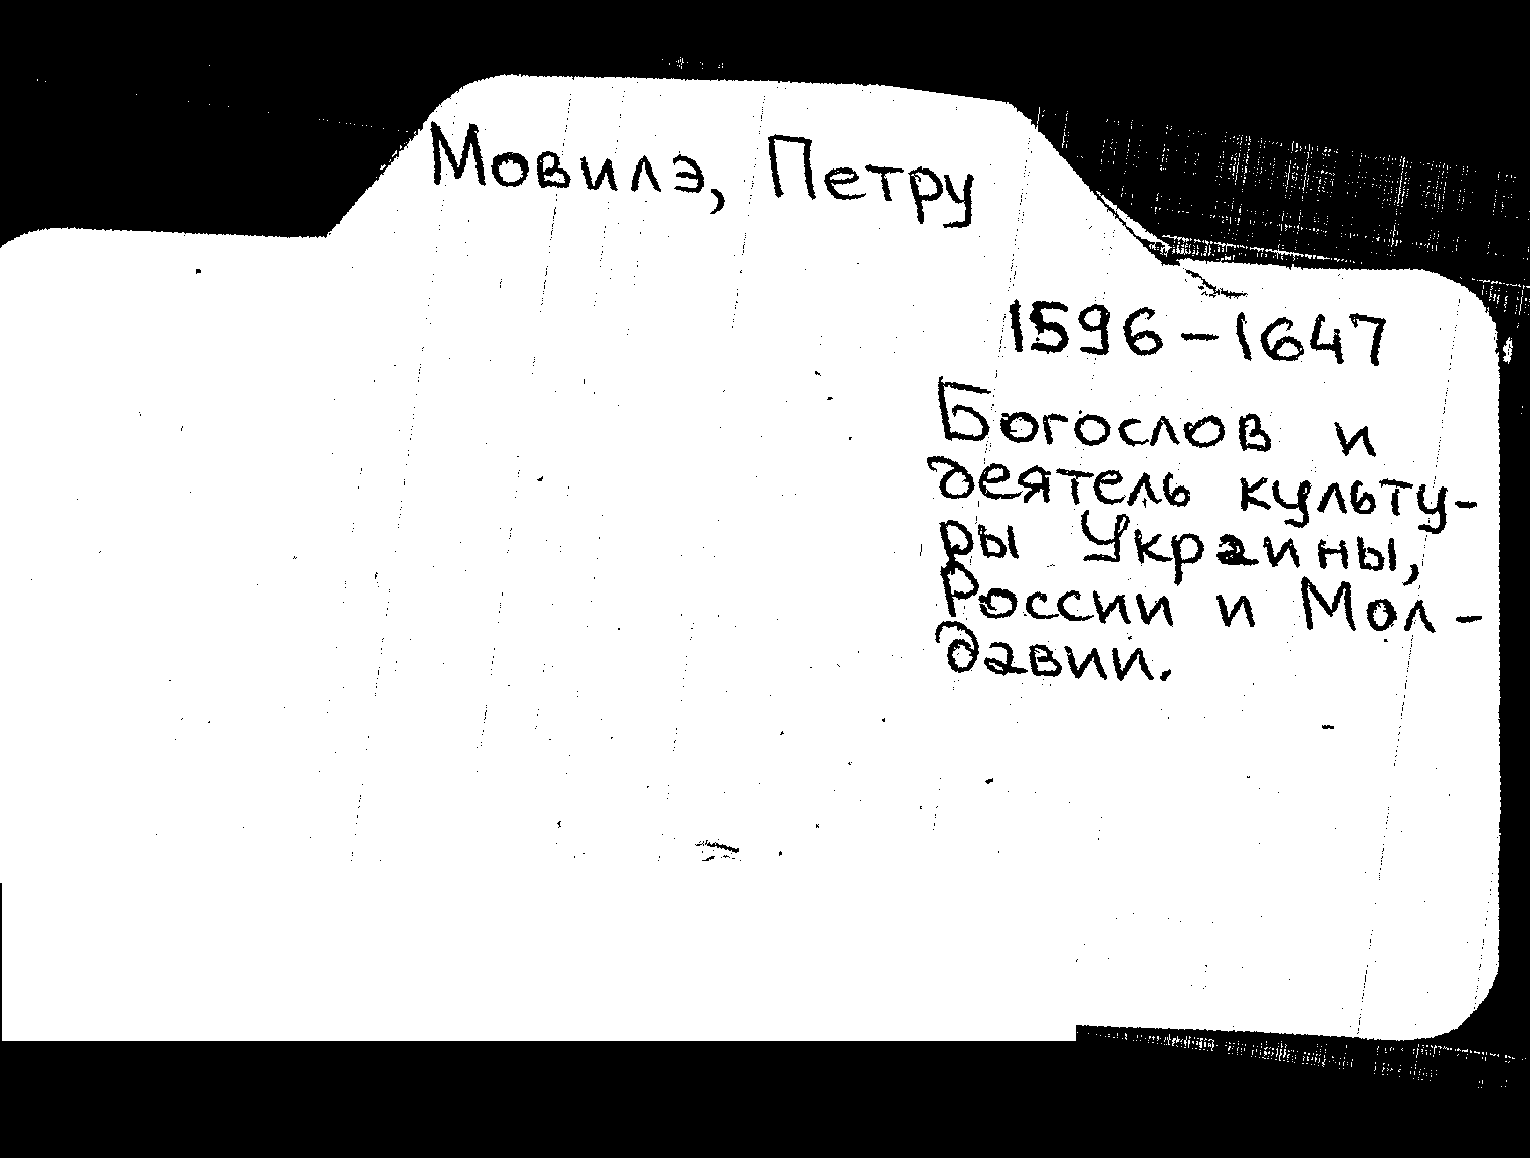 Мовилэ, Петру
1596-1647
Богослов и
деятель культу-
ры Украины,
России и Мол-
давии.